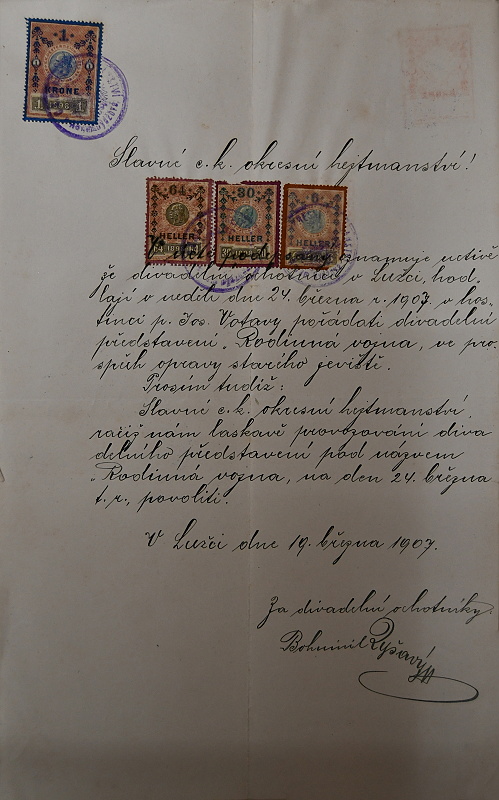 1
KRONE
1 1898 1
Slavné c. k. okresní hejtmanství!
64 30 6
HELLER HELLER HELLER
64 1898 64
V úctě podepsaný oznamuje uctivě
že divadelní ochotníci v Lužci, hod-
lají v neděli dne 24. března r. 1907 v hos-
tinci p. Jos. Votavy pořádati divadelní
představení „Rodinná vojna„ ve pro-
spěch opravy starého jeviště.
Prosím tudíž:
Slavné c. k. okresní hejtmanství
račiž nám laskavě provozování diva
delního představení pod názvem
„Rodinná vojna„ na den 24. března
t. r., povoliti.
V Lužci dne 19. března 1907.
Za divadelní ochotníky
Bohumil Ryšavý